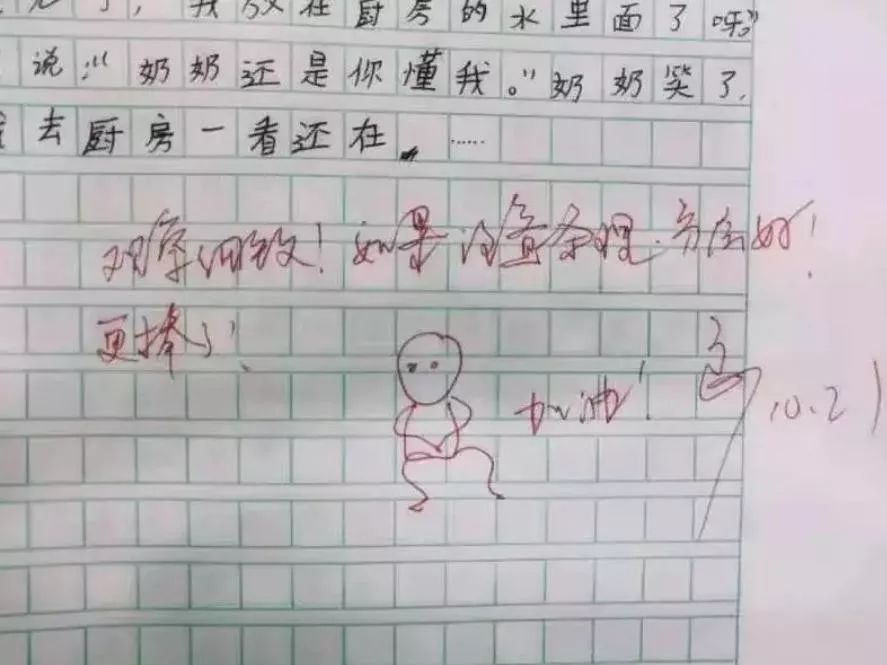 了，我放在厨房的水里面了呀。”
说：“奶奶还是你懂我。”奶奶笑了，
去厨房一看还在。……
观察细致！如果注意条理、方法好！
更棒了！
加油！
10.21